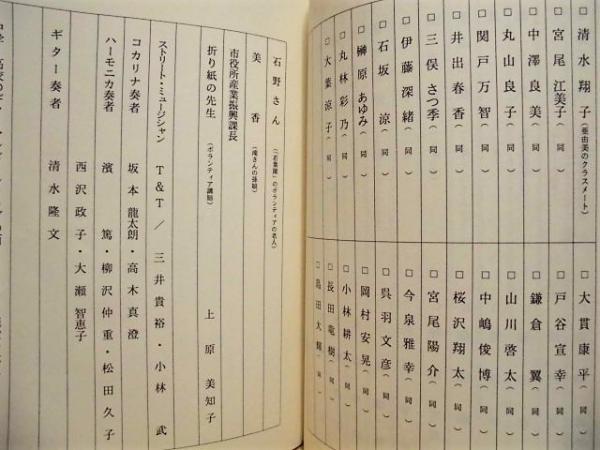 □ 清水翔子(亜由美のクラスメート)
□ 宮尾江美子(同)
□ 中澤良美(同)
□ 丸山良子(同)
□ 関戸万智(同)
□ 井出春香(同)
□ 三俣さつ季(同)
□ 伊藤深緒(同)
□ 石坂涼(同)
□ 榊原あゆみ(同)
□ 丸林彩乃(同)
□ 大葉涼子(同)
□ 大貫康平(同)
□ 戸谷宣幸(同)
□ 鎌倉翼(同)
□ 山川啓太(同)
□ 中嶋俊博(同)
□ 桜沢翔太(同)
□ 宮尾陽介(同)
□ 今泉雅幸(同)
□ 呉羽文彦(同)
□ 岡村安晃(同)
□ 小林耕太(同)
□ 長田竜樹(同)
□ 島田大輝(同)
石野さん(「若葉園」のボランティアの老人)
美香(南さんの孫娘)
市役所産業振興課長
折り紙の先生(ボランティア講師) 上原美知子
ストリート・ミュージシャン T&T/三井貴裕・小林武
コカリナ奏者 坂本龍太朗・高木真澄
ハーモニカ奏者 濱篤・柳沢仲重・松田久子
西沢政子・大瀬智恵子
ギター奏者 清水隆文